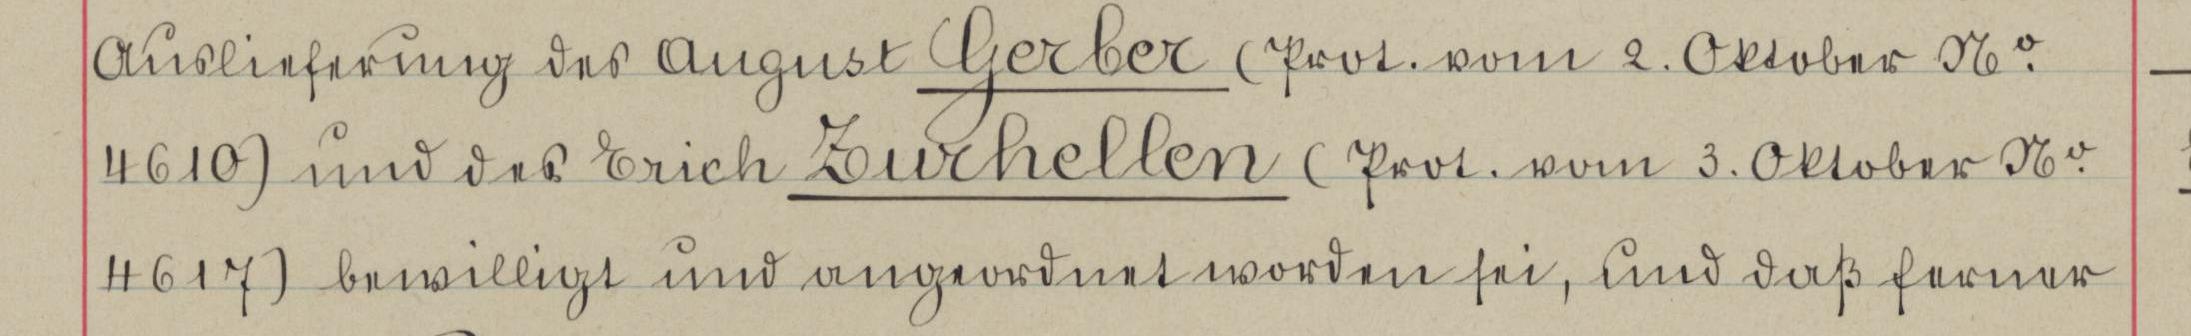 Auslieferung des August Gerber (Prot. vom 2. Oktober No.
4610) und des Erich Zurhellen (Prot. vom 3. Oktober No.
4617) bewilligt und angeordnet worden sei, und daß ferner